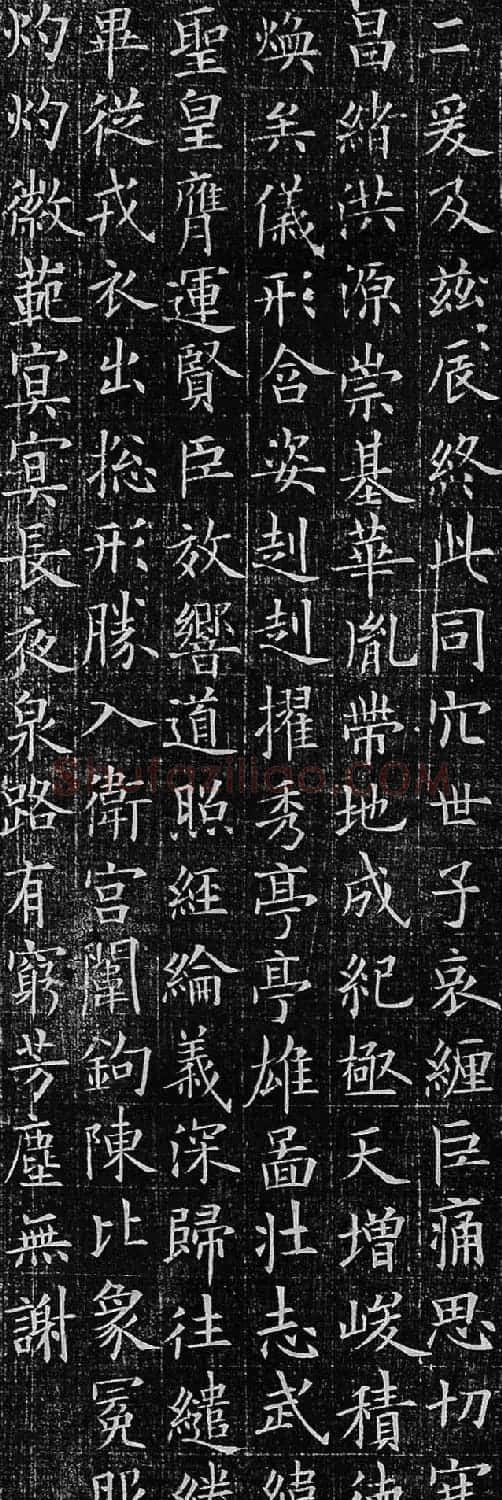 二爰及茲辰終此同穴世子哀纏巨痛思切寒
昌緒洪源崇基華胤帶地成紀極天增峻積德
煥矣儀形含姿赳赳擢秀亭亭雄圖壯志武緯
聖皇膺運賢臣效響道照經綸義深歸往繾綣
畢從戎衣出捴形勝入衛宮闈鉤陳比象冕服
灼灼徽範寘寘長夜泉路有窮芳塵無謝
Shufaziliao.COM